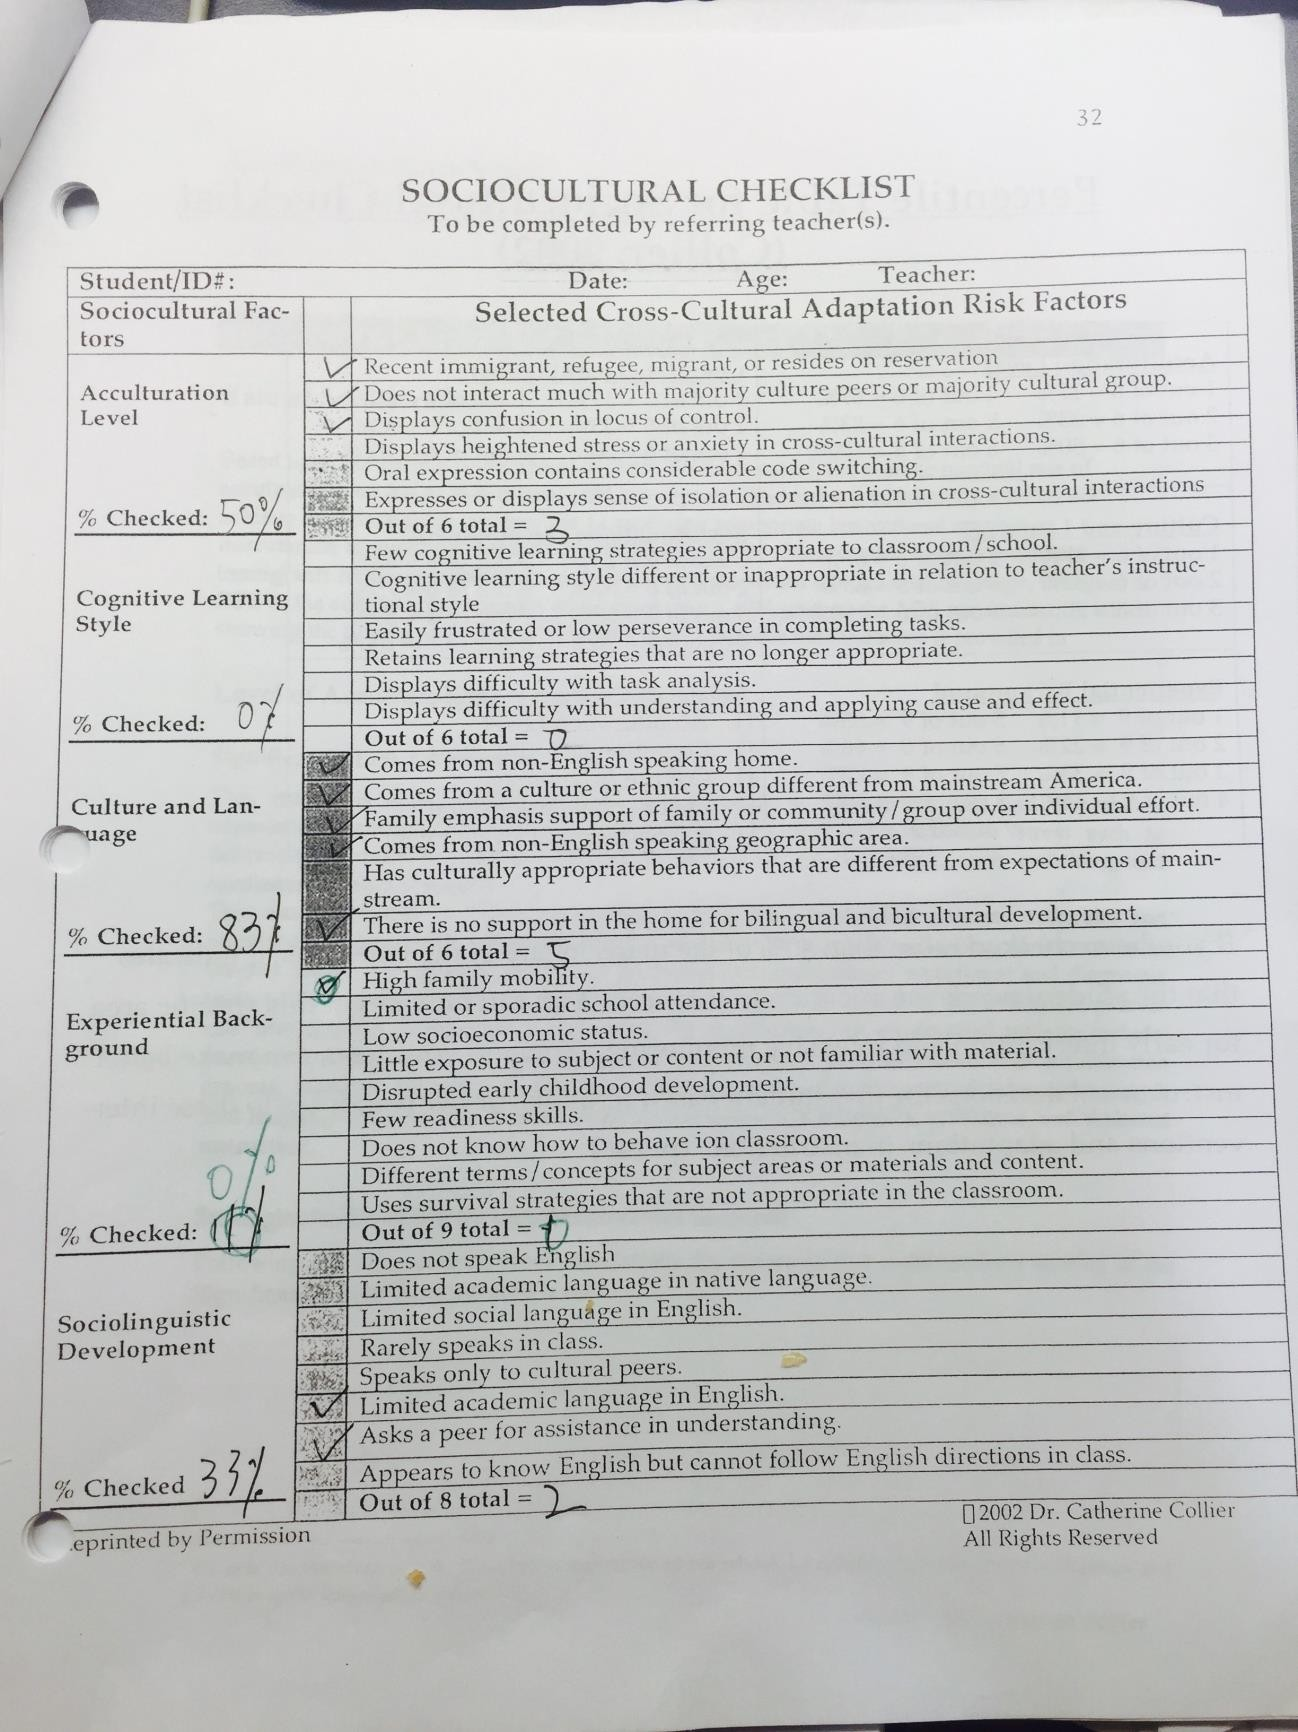 32
SOCIOCULTURAL CHECKLIST
To be completed by referring teacher(s).
Student/ID#: Date: Age: Teacher:
Sociocultural Fac-
tors
Selected Cross-Cultural Adaptation Risk Factors
Acculturation
Level
% Checked: 50%
Recent immigrant, refugee, migrant, or resides on reservation
Does not interact much with majority culture peers or majority cultural group.
Displays confusion in locus of control.
Displays heightened stress or anxiety in cross-cultural interactions.
Oral expression contains considerable code switching.
Expresses or displays sense of isolation or alienation in cross-cultural interactions
Out of 6 total = 3
Cognitive Learning
Style
% Checked: 0%
Few cognitive learning strategies appropriate to classroom/school.
Cognitive learning style different or inappropriate in relation to teacher's instruc-
tional style
Easily frustrated or low perseverance in completing tasks.
Retains learning strategies that are no longer appropriate.
Displays difficulty with task analysis.
Displays difficulty with understanding and applying cause and effect.
Out of 6 total = 0
Culture and Lan-
uage
% Checked: 83%
Comes from non-English speaking home.
Comes from a culture or ethnic group different from mainstream America.
Family emphasis support of family or community/group over individual effort.
Comes from non-English speaking geographic area.
Has culturally appropriate behaviors that are different from expectations of main-
stream.
There is no support in the home for bilingual and bicultural development.
Out of 6 total = 5
Experiential Back-
ground
0%
% Checked:
High family mobility.
Limited or sporadic school attendance.
Low socioeconomic status.
Little exposure to subject or content or not familiar with material.
Disrupted early childhood development.
Few readiness skills.
Does not know how to behave ion classroom.
Different terms/concepts for subject areas or materials and content.
Uses survival strategies that are not appropriate in the classroom.
Out of 9 total = 0
Sociolinguistic
Development
% Checked 33%
Does not speak English
Limited academic language in native language.
Limited social language in English.
Rarely speaks in class.
Speaks only to cultural peers.
Limited academic language in English.
Asks a peer for assistance in understanding.
Appears to know English but cannot follow English directions in class.
Out of 8 total = 2
eprinted by Permission
2002 Dr. Catherine Collier
All Rights Reserved